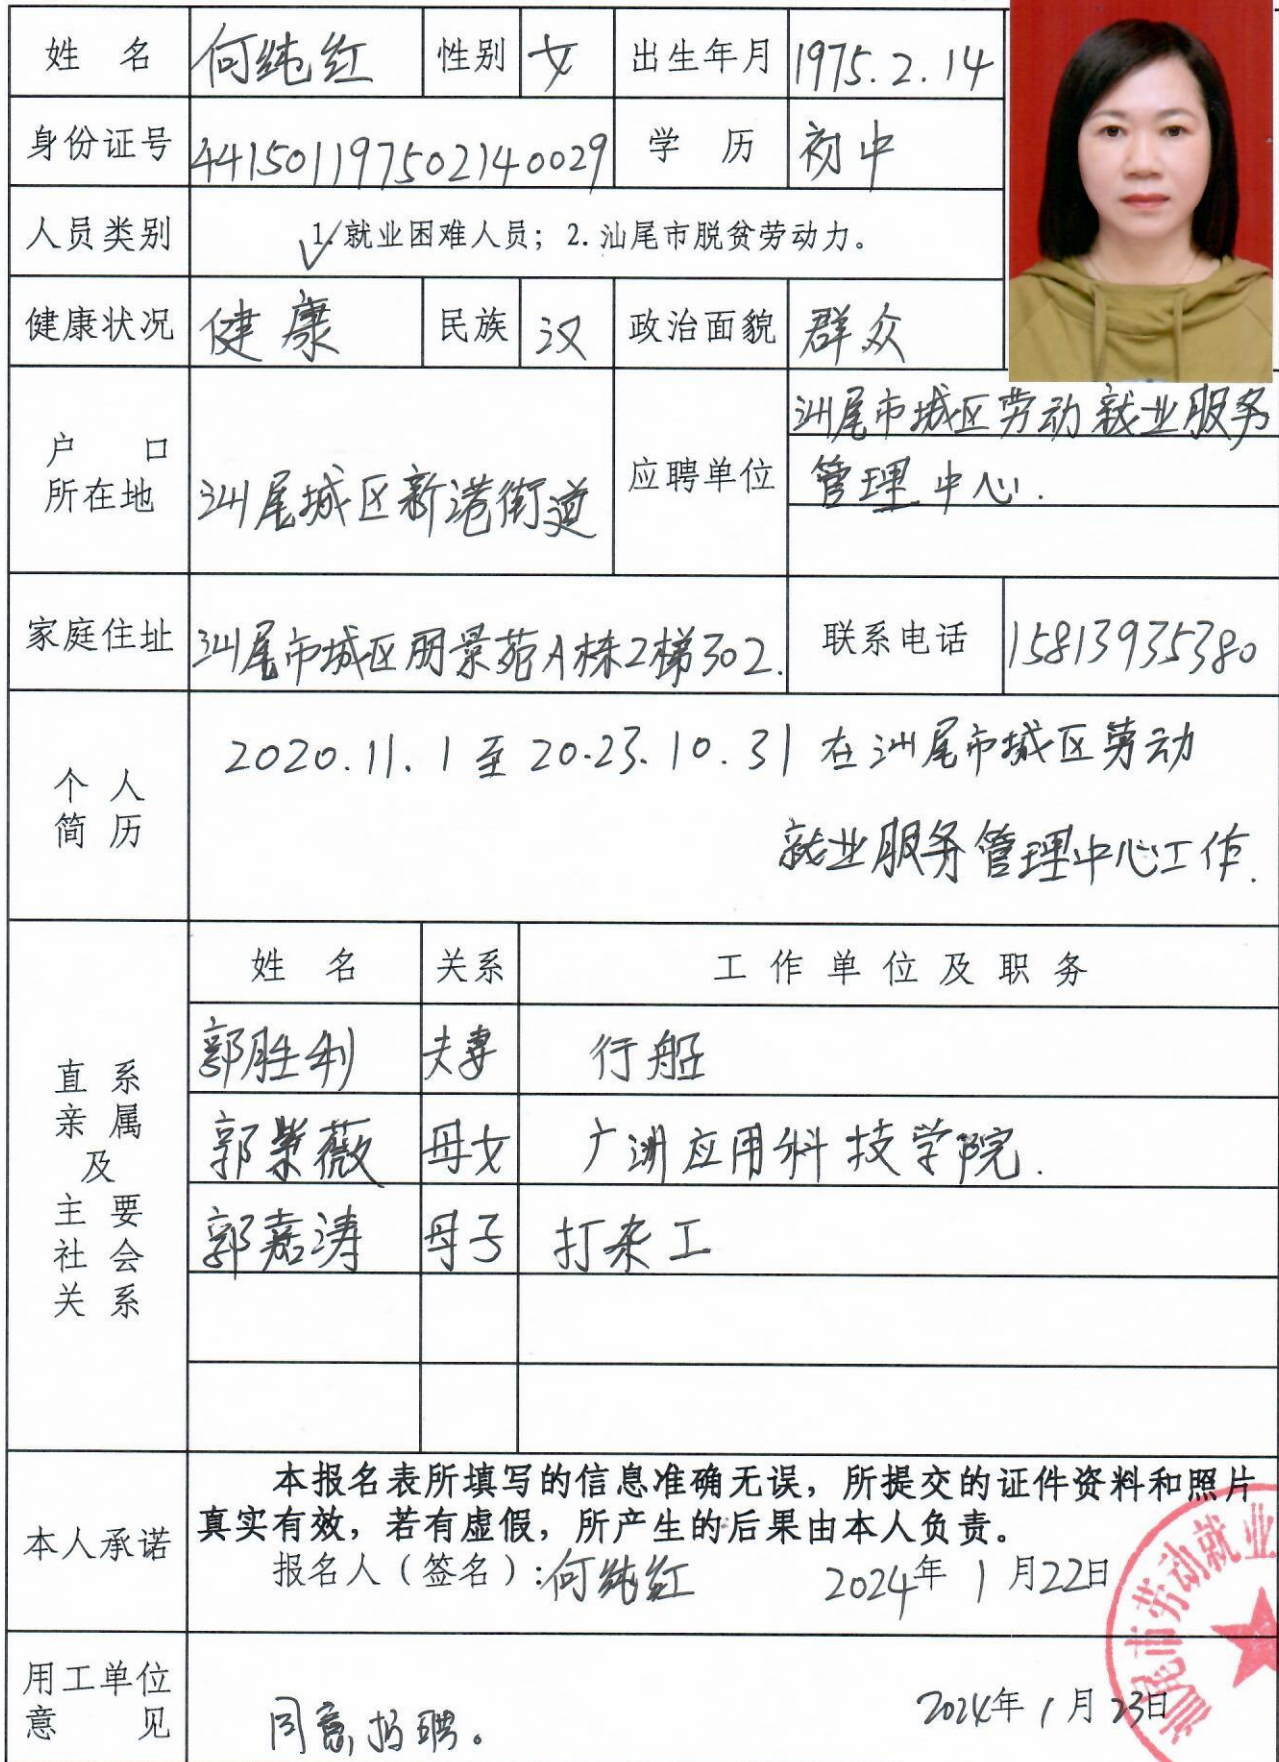 姓 名 何纯红 性别 女 出生年月 1975.2.14
身份证号 441501197502140029 学 历 初中
人员类别 1.就业困难人员；2.汕尾市脱贫劳动力。
健康状况 健康 民族 汉 政治面貌 群众
户 口
所在地 汕尾城区新港街道 应聘单位 汕尾市城区劳动就业服务
管理中心.
家庭住址 汕尾市城区朋景苑A栋2梯302. 联系电话 15813935380
个 人
简 历
2020.11.1至20.23.10.31在汕尾市城区劳动
就业服务管理中心工作.
直 系
亲 属
及
主 要
社 会
关 系
姓 名 关系 工作单位及职务
郭胜利 夫妻 行船
郭紫薇 母女 广洲应用科技学院.
郭嘉涛 母子 打杂工
本人承诺
本报名表所填写的信息准确无误，所提交的证件资料和照片
真实有效，若有虚假，所产生的后果由本人负责。
报名人（签名）:何纯红 2024年1月22日
用工单位
意 见
同意招聘。 2024年1月23日
汕尾市劳动就业